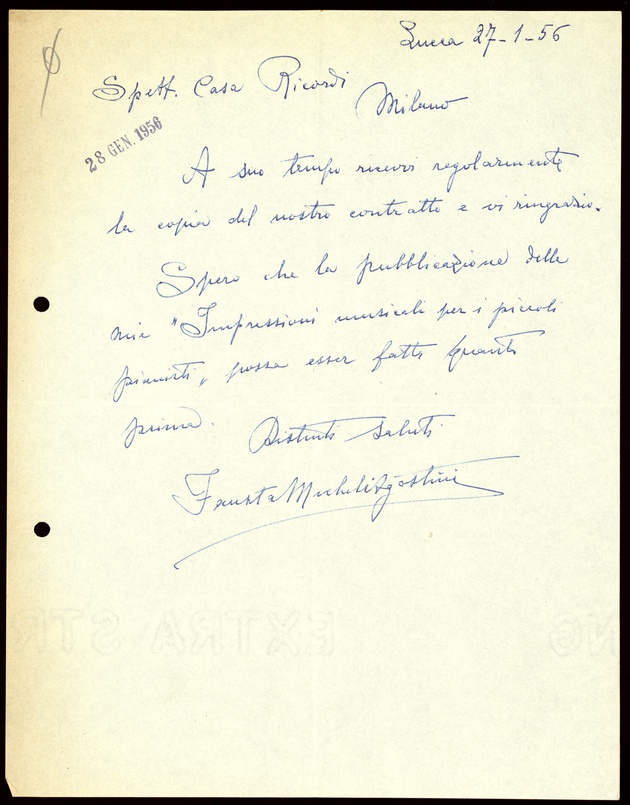 Lucca 27-1-56
Spett. Casa Ricordi
Milano
28 GEN. 1956
A suo tempo ricevei regolarmente
la copia del nostro contratto e vi ringrazio.
Spero che la pubblicazione delle
mie "Impressioni musicali per i piccoli
pianisti" possa esser fatta quanto
prima.
Distinti saluti
Fausta Micheli Agostini
EXTRA STR
NG